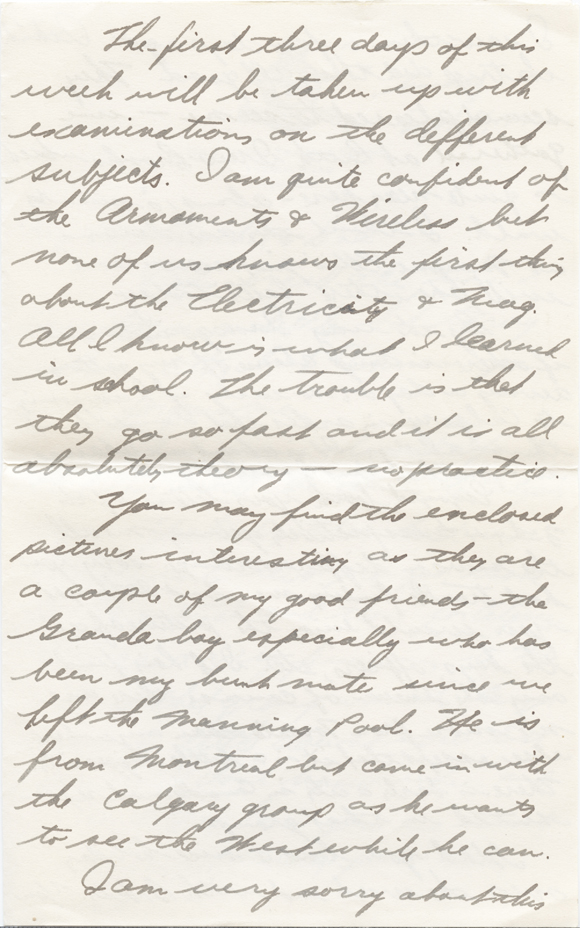 The first three days of this
week will be taken up with
examinations on the different
subjects. I am quite confident of
the Armaments & Wireless but
none of us knows the first thing
about the Electricity & Mag.
All I know is what I learned
in school. The trouble is that
they go so fast and it is all
absolutely theory — no practice.
You may find the enclosed
pictures interesting as they are
a couple of my good friends - the
Granda boy especially who has
been my bunk mate since we
left the Manning Pool. He is
from Montreal but came in with
the Calgary group as he wants
to see the West while he can.
I am very sorry about this